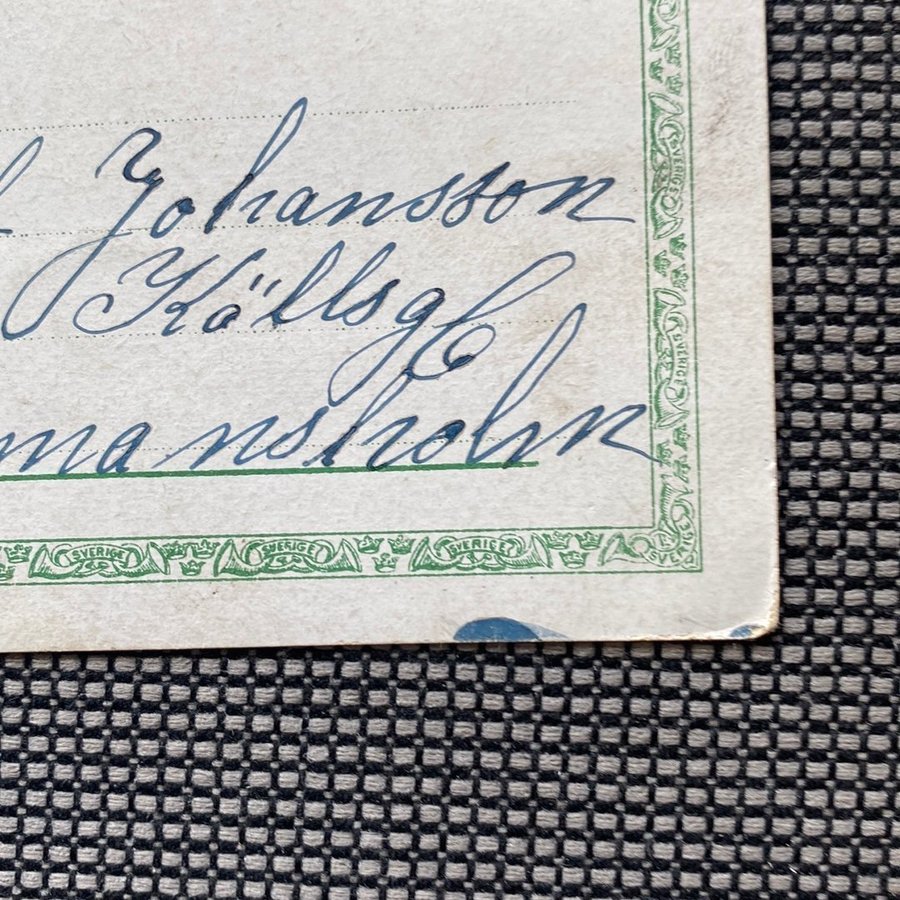 Johansson
Källsg 6
mansholm
SVERIGE SVERIGE SVERIGE SVERIGE
SVERIGE
SVERIGE